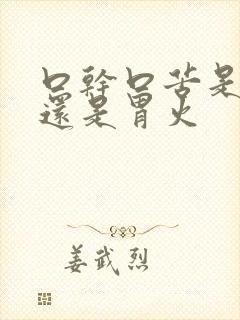 口幹口苦是
還是胃火
姜武烈